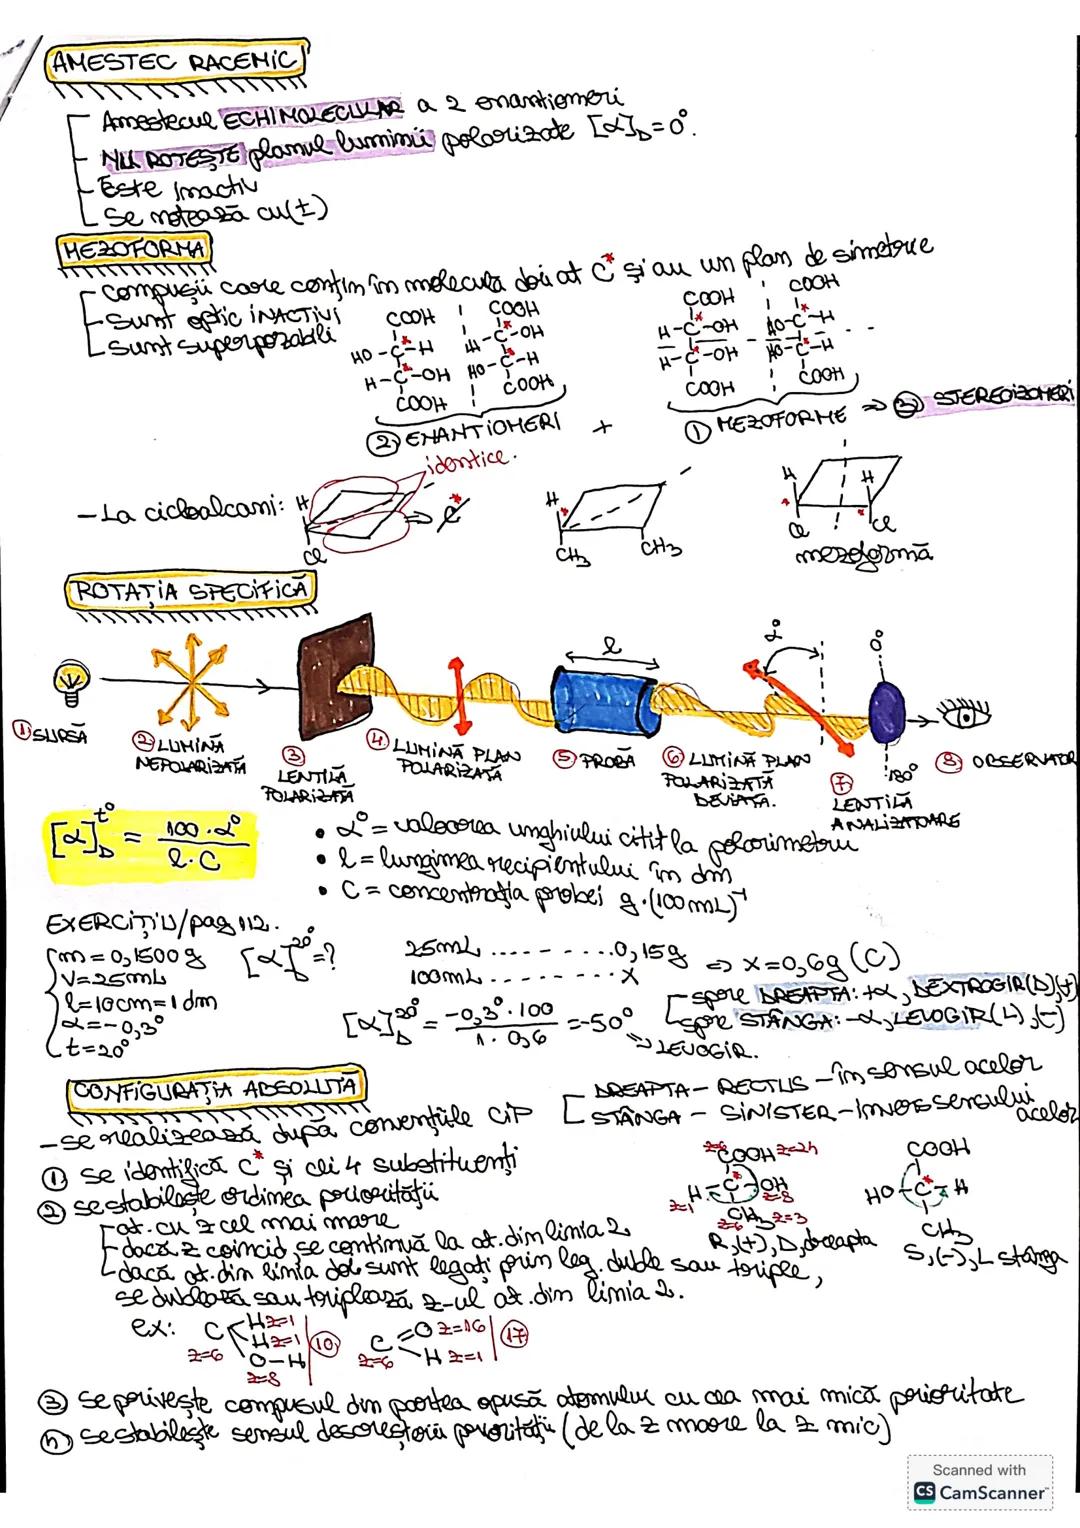 AMESTEC RACEMIC
Amestecul ECHIMOLECULAR a 2 enantiomeri
NU ROTEȘTE planul luminii polarizate [α]D=0°.
Este inactiv
Se notează cu(±)
MEZOFORMA
Compușii care conțin în moleculă doi at C* și au un plan de simetrie
Sunt optic INACTIVI
Sunt superpozabili
COOH COOH COOH COOH
HO-C*-H H-C*-OH H-C*-OH HO-C*-H
H-C*-OH HO-C*-H H-C*-OH HO-C*-H
COOH COOH COOH COOH
② ENANTIOMERI + ① MEZOFORME ⇒ ③ STEREOIZOMERI
identice.
-La cicloalcani: H ⇒ C* H * H H
Cl CH3 CH3 * Cl * Cl
mezoformă
ROTAȚIA SPECIFICĂ
l α° 0°
① SURSĂ
② LUMINĂ NEPOLARIZATĂ
③ LENTILĂ POLARIZATĂ
④ LUMINĂ PLAN POLARIZATĂ
⑤ PROBĂ
⑥ LUMINĂ PLAN POLARIZATĂ DEVIATĂ.
⑦ LENTILĂ ANALIZATOARE
180°
⑧ OBSERVATOR
[α]D t° = 100·α° / l·C
• α° = valoarea unghiului citit la polarimetru
• l = lungimea recipientului în dm
• C = concentrația probei g·(100mL)⁻¹
EXERCIȚIU/pag 112.
m=0,1500g [α]D 20°=?
V=25mL
l=10cm=1dm
α=-0,3°
t=20°
25mL ..........0,15g
100mL..........x
⇒ x=0,6g (C)
[α]D 20° = -0,3°·100 / 1·0,6 = -50°
⇒ LEVOGIR.
spre DREAPTA: +α, DEXTROGIR(D),(+)
spre STÂNGA: -α, LEVOGIR(L),(-)
CONFIGURAȚIA ABSOLUTĂ
DREAPTA - RECTUS - în sensul acelor
STÂNGA - SINISTER - invers sensului acelor
-se realizează după convențiile CIP
① se identifică C* și cei 4 substituenți
② se stabilește ordinea priorității
at. cu z cel mai mare
dacă z coincid, se continuă la at. din linia 2
dacă at. din linia doi sunt legați prin leg. duble sau triple,
se dublează sau triplează z-ul at. din linia 2.
z=6 COOH z=24
H-C*-OH
z=1 z=8
CH3 z=3
z=6
R,(+),D,dreapta
COOH
HO-C*-H
CH3
S,(-),L stânga
ex: C H z=1
z=6 H z=1 ⑩
O-H
z=8
C =O z=16 ⑰
z=6 H z=1
③ se privește compusul din partea opusă atomului cu cea mai mică prioritate
④ se stabilește sensul descreșterii priorității (de la z mare la z mic)
Scanned with
CS CamScanner